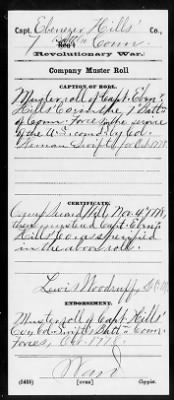 Capt. Ebenezer Hills' Co.,
7 Reg't Conn.
Revolutionary War.
Company Muster Roll
CAPTION OF ROLL.
Muster roll of Capt. Eben'r
Hills' Co. in the Batt'n
of Conn. Forces in the service
of the U.S. com'd by Col.
Heman Swift for Oct. 1778.
CERTIFICATE.
Camp Nov. 4, 1778,
then mustered Capt. Eben'r
Hills' Co. as specified
in the above roll.
Lewis Woodruff,
ENDORSEMENT.
Muster roll of Capt. Hills'
Co. Col. Swift's Batt'n Conn.
Forces, Oct. 1778.
Ward
(543) [OVER] Copyist.